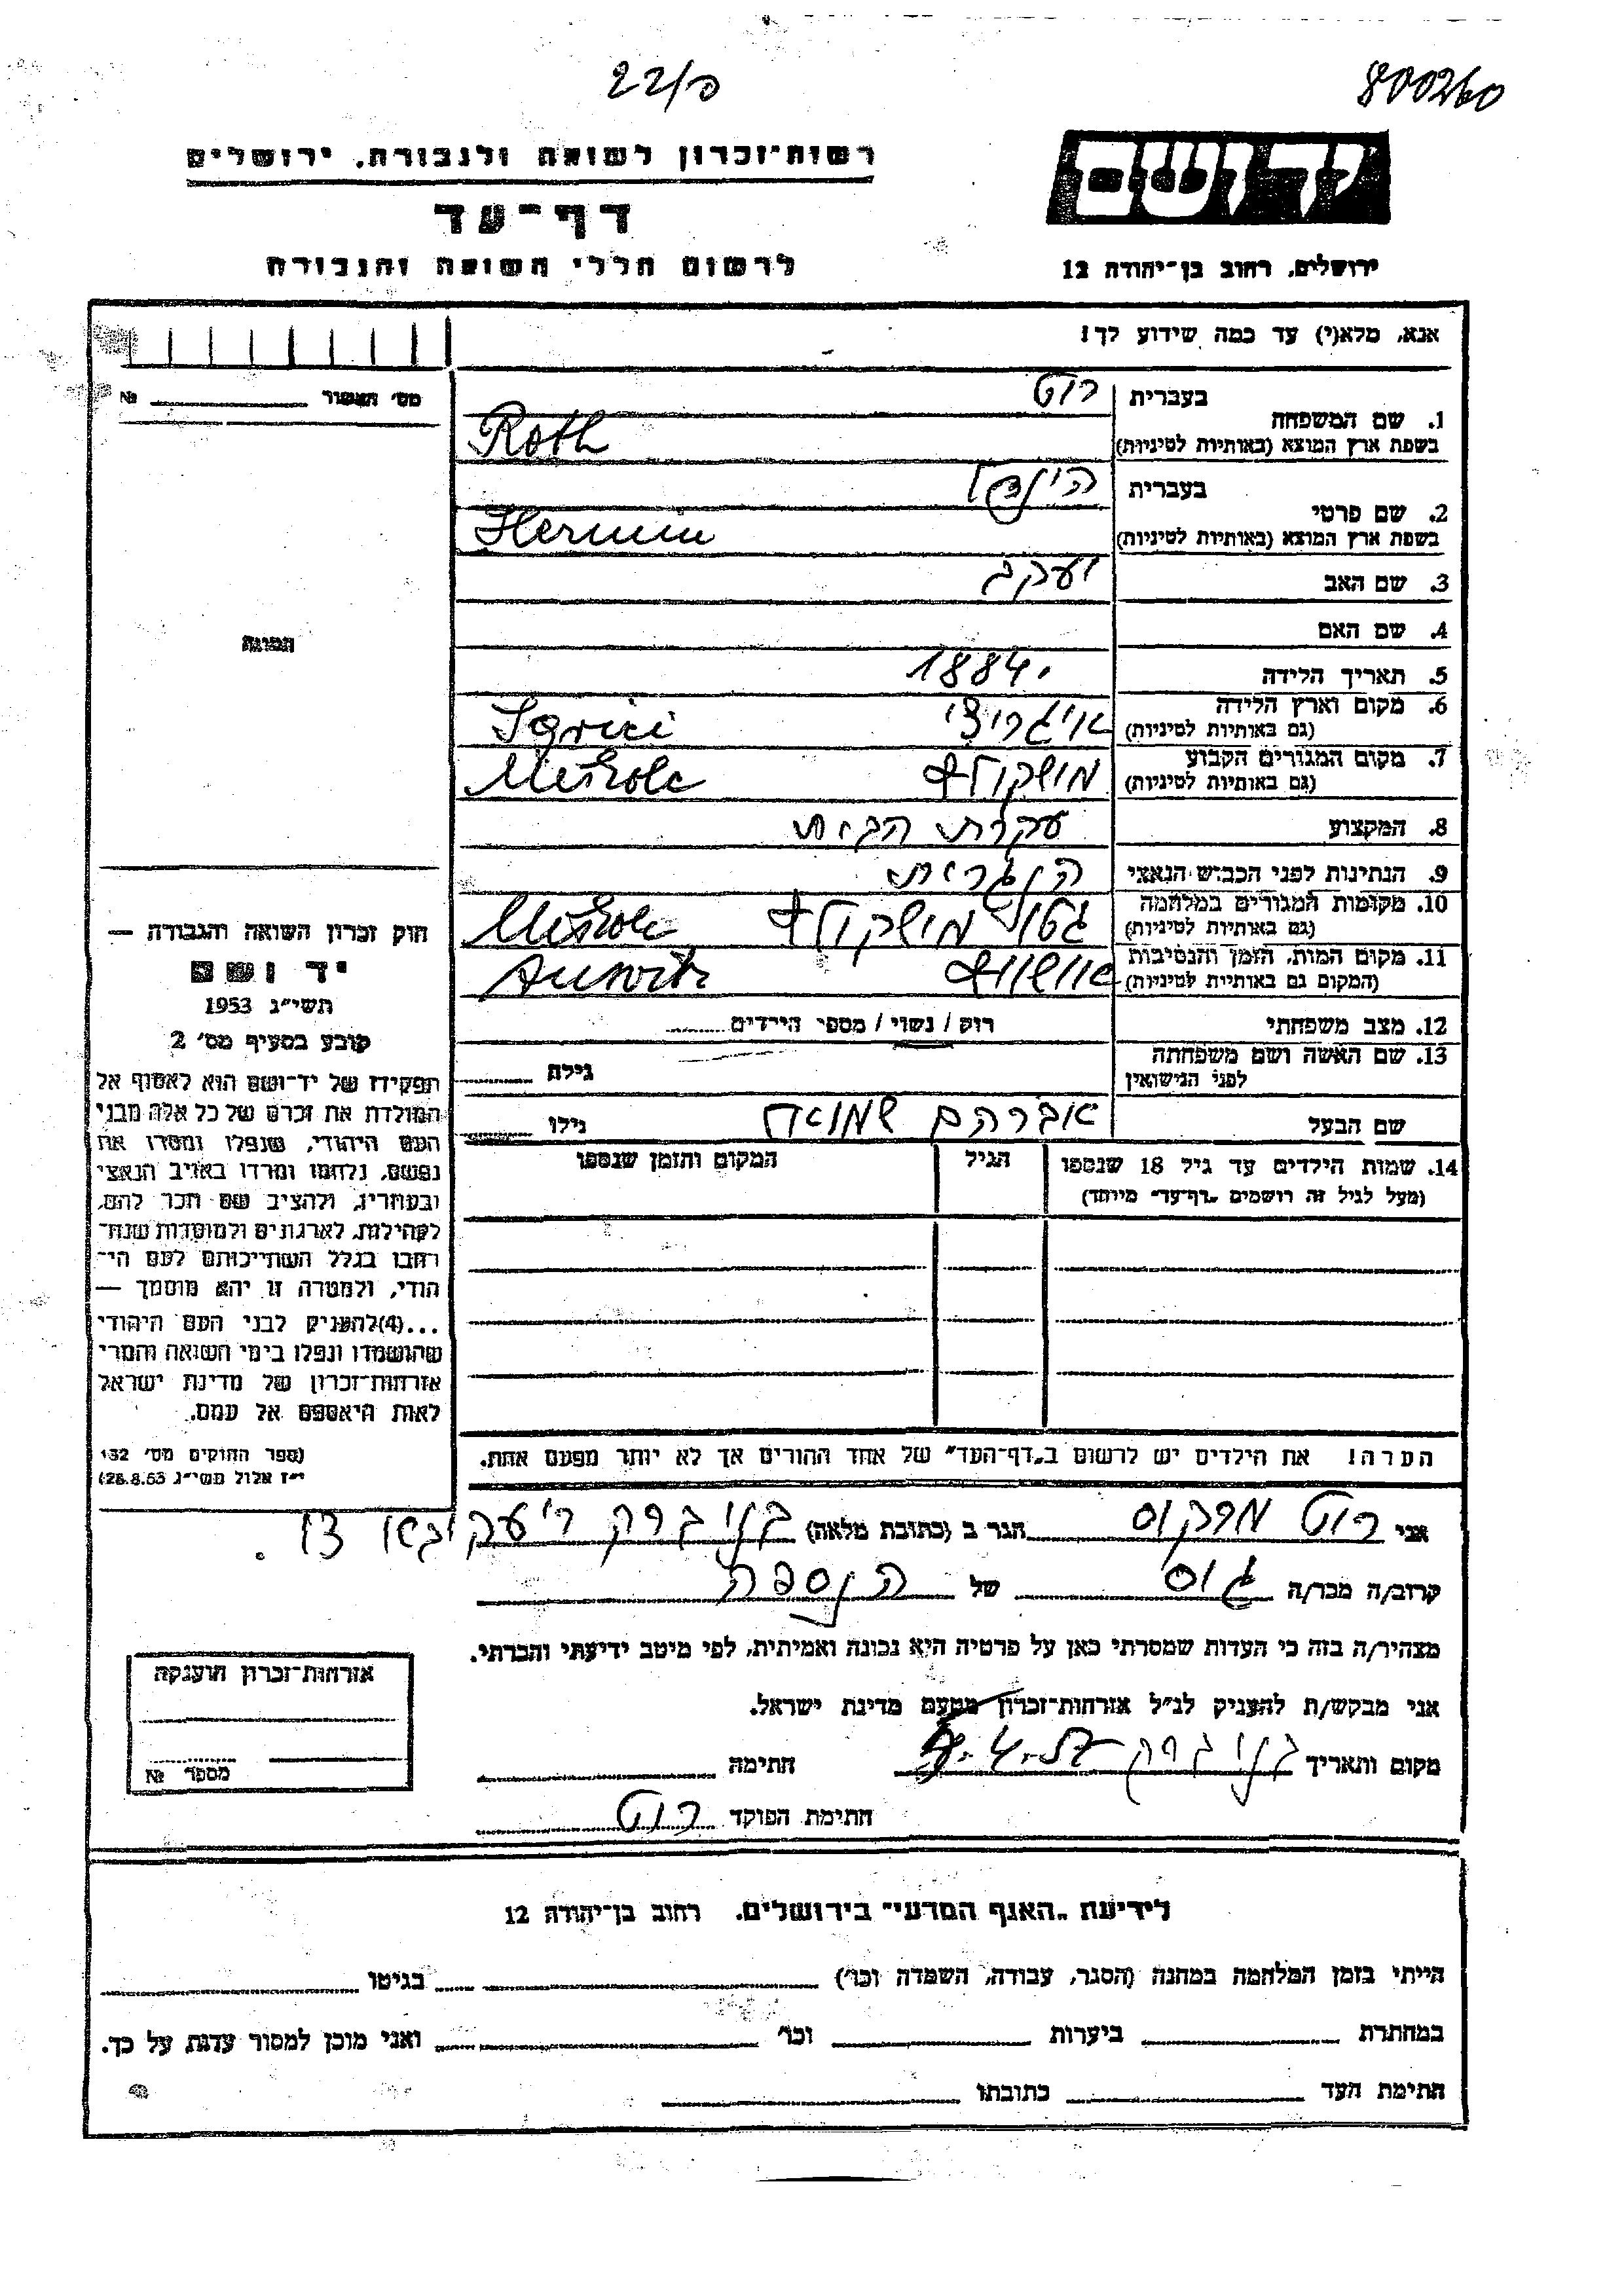 22/ק
800260
ידושם
רשות־זכרון לשואה ולגבורה. ירושלים
דף־עד
לרשום חללי השואה והגבורה
ירושלים, רחוב בן־יהודה 12
אנא, מלא(י) עד כמה שידוע לך!
מס׳ האשור № 
1. שם המשפחה
בעברית רוט
בשפת ארץ המוצא (באותיות לטיניות) Roth
2. שם פרטי
בעברית
בשפת ארץ המוצא (באותיות לטיניות) Hermin
3. שם האב יעקב
4. שם האם
5. תאריך הלידה 1884.
6. מקום וארץ הלידה
(גם באותיות לטיניות) איגריצי Igrici
7. מקום המגורים הקבוע
(גם באותיות לטיניות) מישקולץ Miskolc
8. המקצוע עקרת הבית
9. הנתינות לפני הכבוש הנאצי הונגרית
10. מקומות המגורים במלחמה
(גם באותיות לטיניות) גטו מישקולץ Miskolc
11. מקום המות, הזמן והנסיבות
(המקום גם באותיות לטיניות) אושוויץ Auswitz
12. מצב משפחתי רוק / נשוי / מספר הילדים
13. שם האשה ושם משפחתה
לפני הנישואין גילה
שם הבעל אברהם שמואל גילו
14. שמות הילדים עד גיל 18 שנספו הגיל המקום והזמן שנספו
(מעל לגיל זה רושמים „דף־עד״ מיוחד)
הערה! את הילדים יש לרשום ב„דף־העד״ של אחד ההורים אך לא יותר מפעם אחת.
התמונה
חוק זכרון השואה והגבורה —
יד ושם
תשי״ג 1953
קובע בסעיף מס׳ 2
תפקידו של יד־ושם הוא לאסוף אל
המולדת את זכרם של כל אלה מבני
העם היהודי, שנפלו ומסרו את
נפשם, נלחמו ומרדו באויב הנאצי
ובעוזריו, ולהציב שם וזכר להם,
לקהילות, לארגונים ולמוסדות שנח־
רבו בגלל השתייכותם לעם הי־
הודי, ולמטרה זו יהא מוסמך —
...(4)להעניק לבני העם היהודי
שהושמדו ונפלו בימי השואה והמרי
אזרחות־זכרון של מדינת ישראל
לאות היאספם אל עמם.
(ספר החוקים מס׳ 132
י״ז אלול תשי״ג 28.8.53)
אני רוט מרקוס הגר ב (כתובת מלאה) בני ברק ר׳ יעקובסון 13.
קרוב/ה מכר/ה גיס של הנספה
מצהיר/ה בזה כי העדות שמסרתי כאן על פרטיה היא נכונה ואמיתית, לפי מיטב ידיעתי והכרתי.
אני מבקש/ת להעניק לנ״ל אזרחות־זכרון מטעם מדינת ישראל.
מקום ותאריך בני ברק 9.4.57 חתימה
חתימת הפוקד רוט
אזרחות־זכרון הוענקה
מספר №
לידיעת „האגף המדעי״ בירושלים. רחוב בן־יהודה 12
הייתי בזמן המלחמה במחנה (הסגר, עבודה, השמדה וכו׳) בגיטו
במחתרת ביערות וכו׳ ואני מוכן למסור עדות על כך.
חתימת העד כתובתו